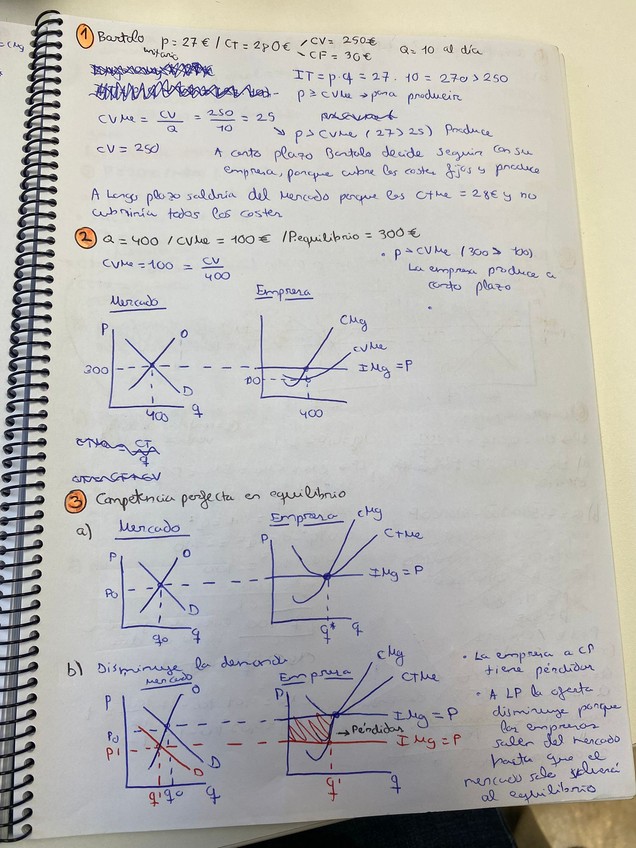 = CMg
1 Bartolo p = 27€ / CT = 280€ CV = 250€ Q = 10 al día
unitario CF = 30€
IT = p·q = 27 · 10 = 270 > 250
p ≥ CVMe → para producir
CVMe = CV/Q = 250/10 = 25
↘ p > CVMe (27 > 25) Produce
CV = 250 A corto plazo Bartolo decide seguir con su
empresa, porque cubre los costes fijos y produce
A largo plazo saldría del mercado porque los CTMe = 28€ y no
cubriría todos los costes
2 Q = 400 / CVMe = 100€ / Pequilibrio = 300€
· p > CVMe (300 > 100)
CVMe = 100 = CV/400
La empresa produce a
corto plazo
Mercado Empresa
P O CMg
CVMe
300 IMg = P
100
D
400 q 400
3 Competencia perfecta en equilibrio
a) Mercado Empresa CMg
P O P CTMe
P0 IMg = P
D
q0 q q* q
b) Disminuye la demanda
Mercado Empresa CMg
P O P CTMe
P0 IMg = P
P1 → Pérdidas IMg = P
D
D
q1 q0 q q1 q
· La empresa a CP
tiene pérdidas
· A LP la oferta
disminuye porque
las empresas
salen del mercado
hasta que el
mercado solo volverá
al equilibrio